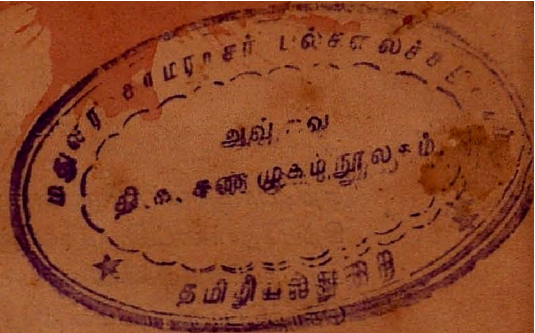 மதுரை காமராசர் பல்கலைக்கழகம்
அவ்வை
தி.க. சண்முகம் நூலகம்.
தமிழியல்துறை